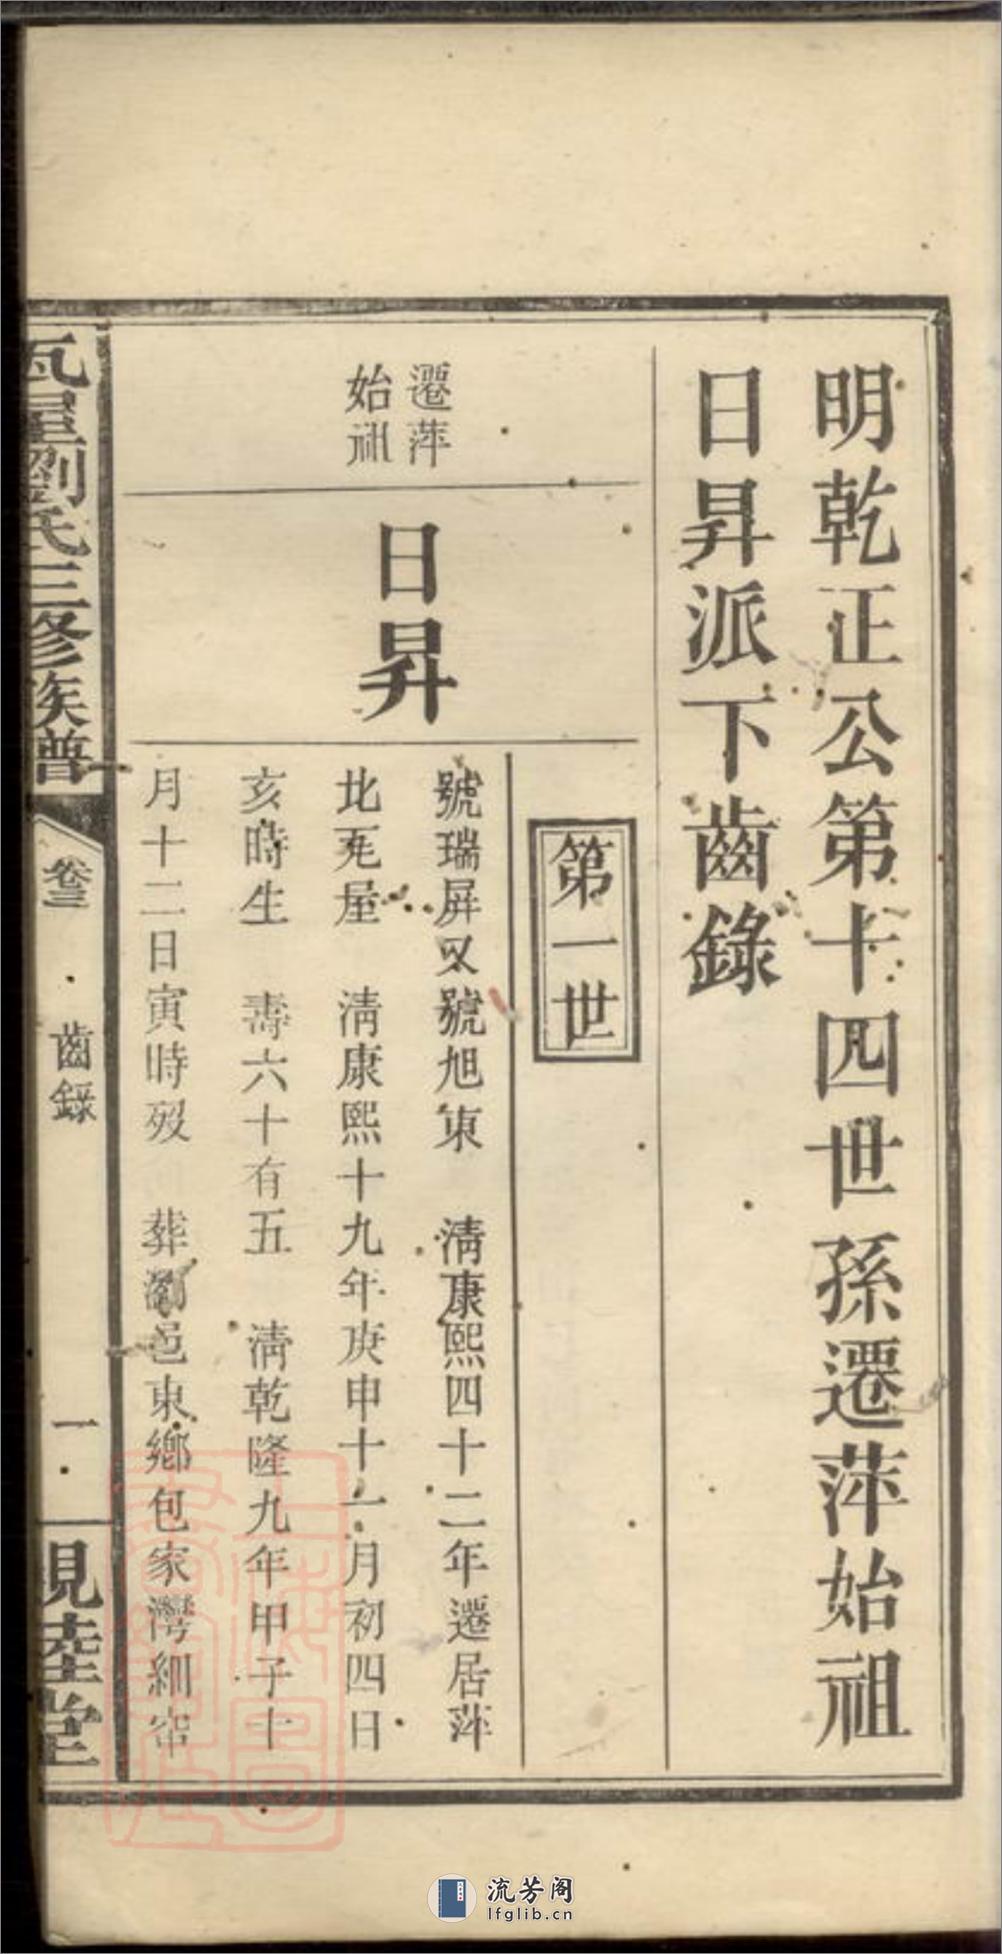 明乾正公第十四世孫遷萍始祖
日昇派下齒錄
第一世
遷萍
始祖
日昇
號瑞屏又號旭東　清康熙四十二年遷居萍
北瓦屋　清康熙十九年庚申十一月初四日
亥時生　壽六十有五　清乾隆九年甲子十
月十二日寅時歿　葬瀏邑東鄉包家灣細窄
瓦屋劉氏三修族譜
卷三
齒錄
一
親睦堂
流芳阁
lfglib.cn